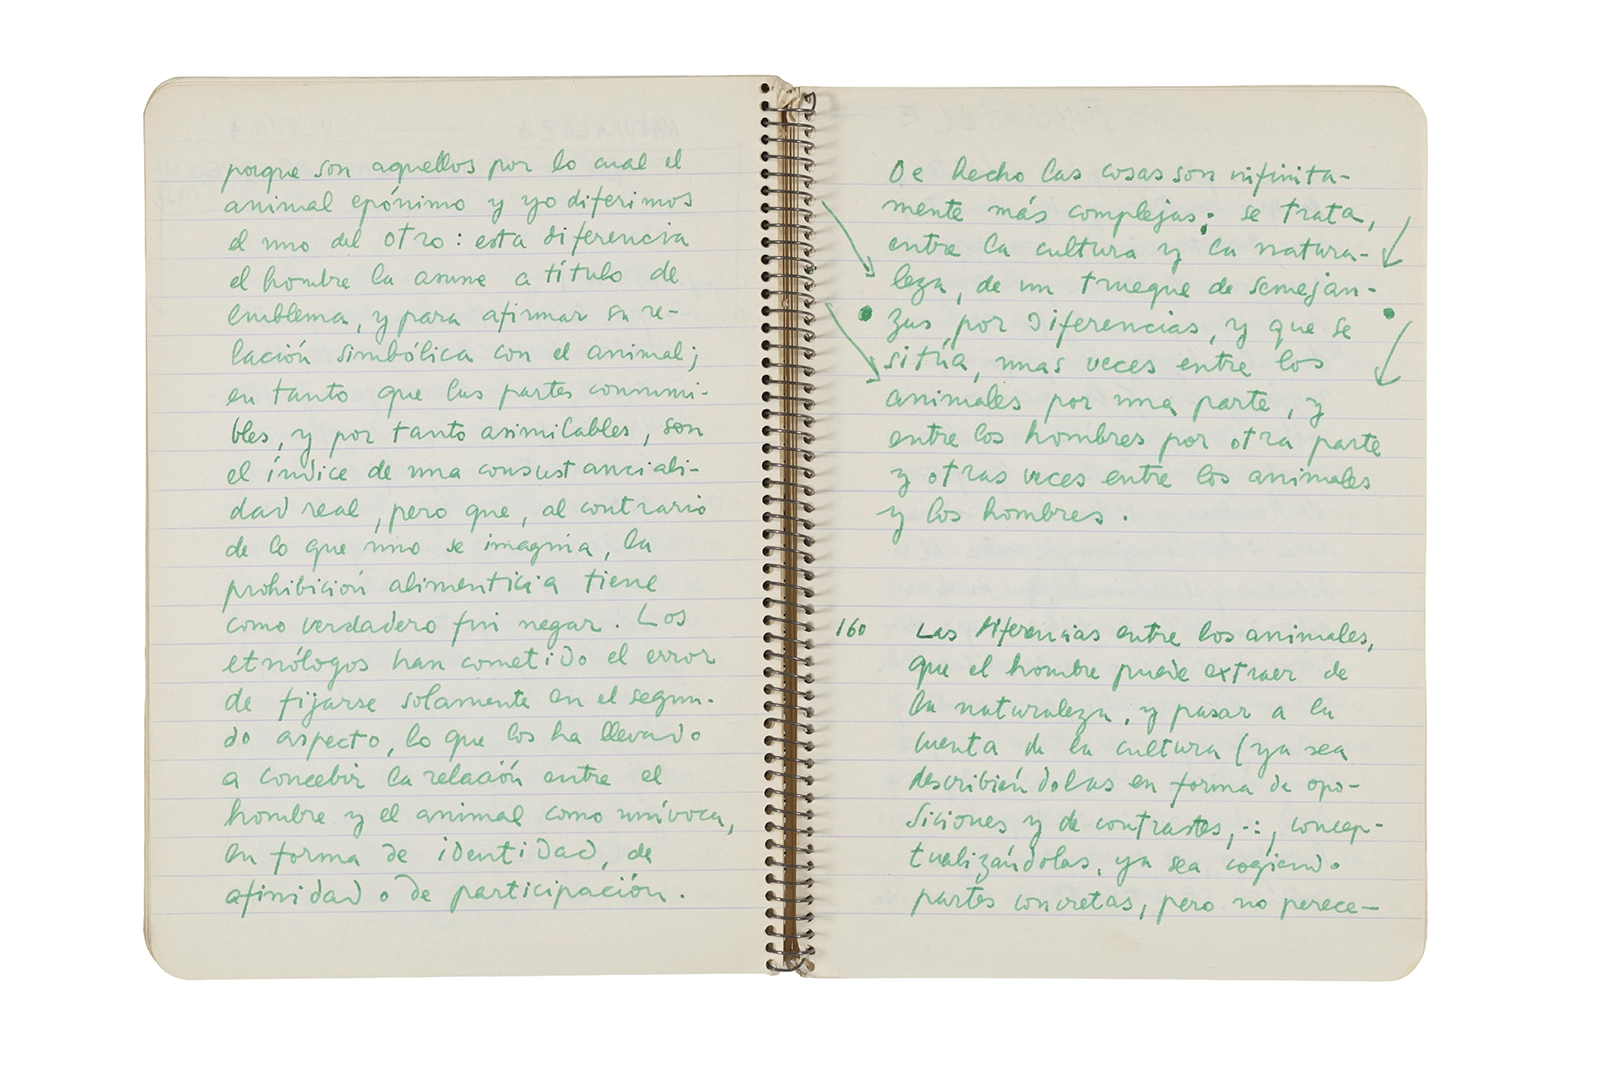 porque son aquellos por lo cual el
animal epónimo y yo diferimos
el uno del otro: esta diferencia
el hombre la asume a título de
emblema, y para afirmar su re-
lación simbólica con el animal;
en tanto que las partes consumi-
bles, y por tanto asimilables, son
el índice de una consustanciali-
dad real, pero que, al contrario
de lo que uno se imagina, la
prohibición alimenticia tiene
como verdadero fin negar. Los
etnólogos han cometido el error
de fijarse solamente en el segun-
do aspecto, lo que los ha llevado
a concebir la relación entre el
hombre y el animal como unívoca,
en forma de identidad, de
afinidad o de participación.
De hecho las cosas son infinita-
mente más complejas: se trata,
entre la cultura y la natura-
leza, de un trueque de semejan-
zas por diferencias, y que se
sitúa, unas veces entre los
animales por una parte, y
entre los hombres por otra parte
y otras veces entre los animales
y los hombres.
160 Las diferencias entre los animales,
que el hombre puede extraer de
la naturaleza, y pasar a la
cuenta de la cultura (ya sea
describiéndolas en forma de opo-
siciones y de contrastes, .:, concep-
tualizándolas, ya sea cogiendo
partes concretas, pero no perece-